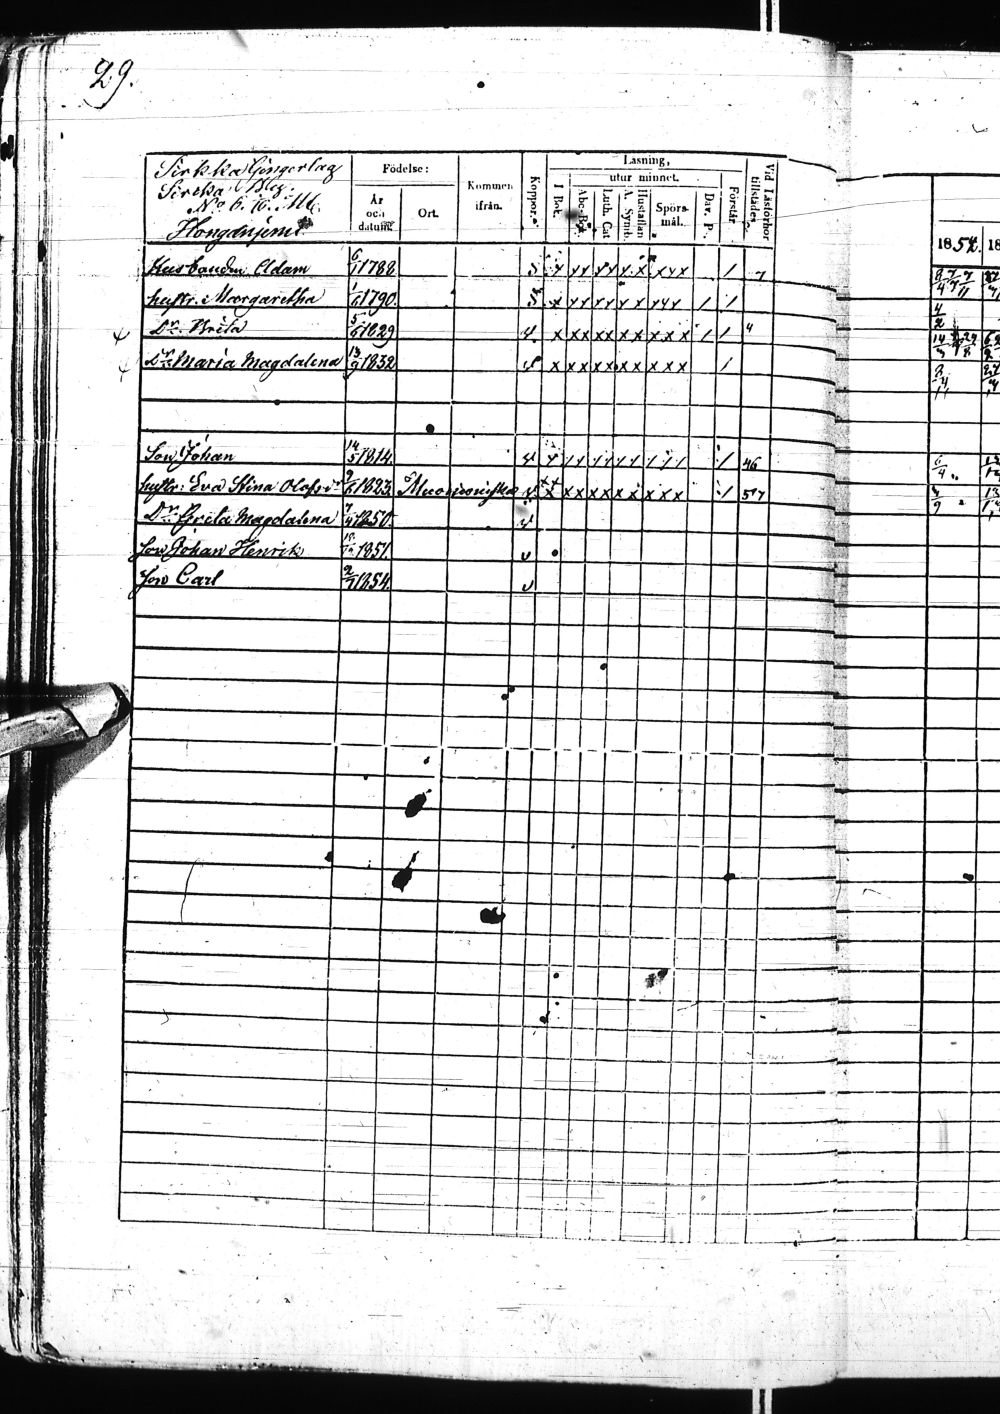 29.
Sirkka Gingerlag
Sirkka By
No 6. 16.
Födelse:
År och datum.
Ort.
Kommen ifrån.
Koppor.
Läsning,
I Bok.
utur minnet.
Abc-Bok.
Luth. Cat
A. Symb.
Hustaflan
Spörsmål.
Dav. P.
Förstår.
Vid Läsförhör tillstädes
1854.
Husbonden Adam 6/1 1788. x x x x x x x x x x 1 7
hustr: Margaretha 1/6 1790. x x x x x x x x x x 1 1
Dr Brita 5/6 1829 x x x x x x x x x x 1 1 4
Dr Maria Magdalena 13/9 1832 x x x x x x x x x x 1
Son Johan 14/5 1814. 1 46
hustr: Eva Stina Olofsdr 1823. Muonioniska x x x x x x x x x x 1 57
Dr Greta Magdalena 7/4 1850
Son Johan Henrik 1851.
Son Carl 2/7 1854.